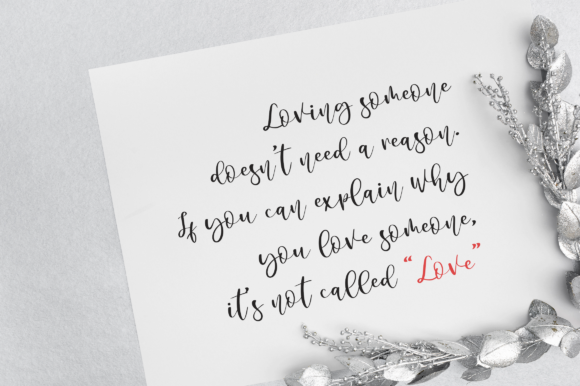 Loving someone
doesn't need a reason.
If you can explain why
you love someone,
it's not called "Love"